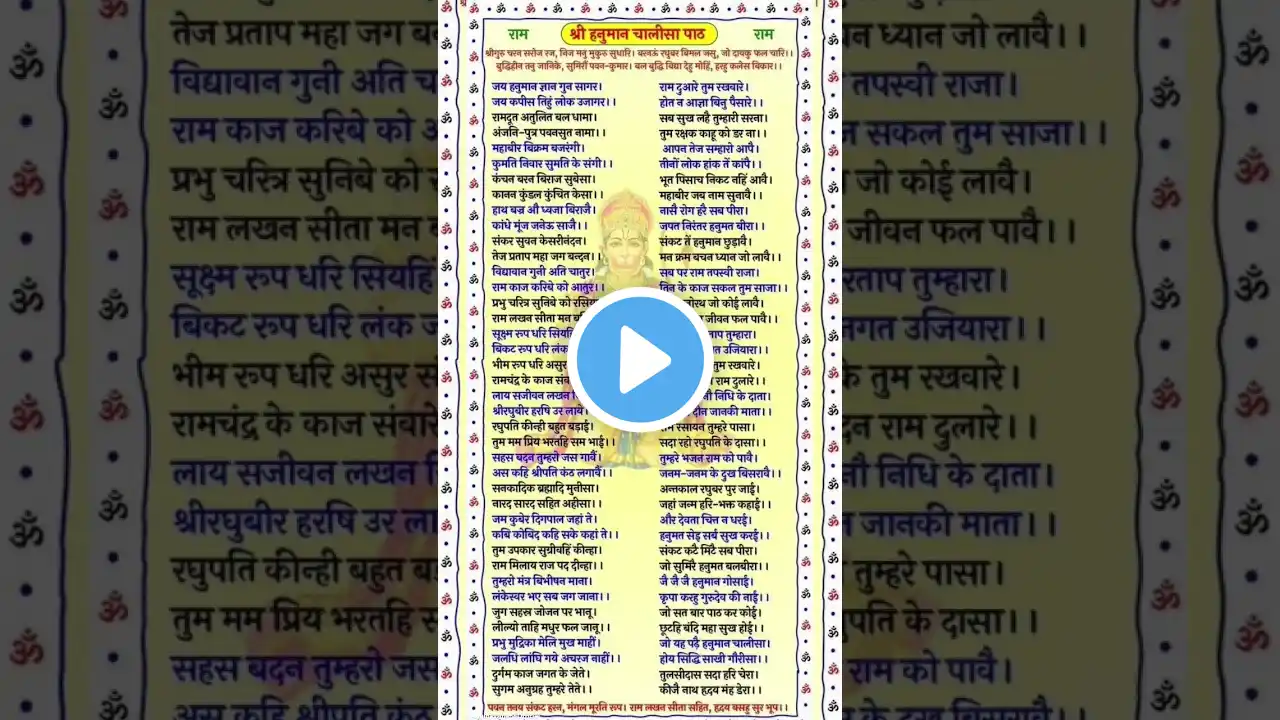 राम
श्री हनुमान चालीसा पाठ
राम
श्रीगुरु चरन सरोज रज, निज मनु मुकुरु सुधारि। बरनऊं रघुबर बिमल जसु, जो दायकु फल चारि।।
बुद्धिहीन तनु जानिके, सुमिरौं पवन-कुमार। बल बुद्धि बिद्या देहु मोहिं, हरहु कलेस बिकार।।
जय हनुमान ज्ञान गुन सागर।
जय कपीस तिहुं लोक उजागर।।
रामदूत अतुलित बल धामा।
अंजनि-पुत्र पवनसुत नामा।।
महाबीर बिक्रम बजरंगी।
कुमति निवार सुमति के संगी।।
कंचन बरन बिराज सुबेसा।
कानन कुंडल कुंचित केसा।।
हाथ बज्र औ ध्वजा बिराजै।
कांधे मूंज जनेऊ साजै।।
संकर सुवन केसरीनंदन।
तेज प्रताप महा जग बन्दन।।
विद्यावान गुनी अति चातुर।
राम काज करिबे को आतुर।।
प्रभु चरित्र सुनिबे को
राम लखन सीता मन
सूक्ष्म रूप धरि
बिकट रूप धरि लंक
भीम रूप धरि असुर
रामचंद्र के काज
लाय सजीवन लखन
श्रीरघुबीर हरषि उर लाये।
रघुपति कीन्ही बहुत बड़ाई।
तुम मम प्रिय भरतहि सम भाई।।
सहस बदन तुम्हरो जस गावैं।
अस कहि श्रीपति कंठ लगावैं।।
सनकादिक ब्रह्मादि मुनीसा।
नारद सारद सहित अहीसा।।
जम कुबेर दिगपाल जहां ते।
कबि कोबिद कहि सके कहां ते।।
तुम उपकार सुग्रीवहिं कीन्हा।
राम मिलाय राज पद दीन्हा।।
तुम्हरो मंत्र बिभीषन माना।
लंकेस्वर भए सब जग जाना।।
जुग सहस्र जोजन पर भानू।
लील्यो ताहि मधुर फल जानू।।
प्रभु मुद्रिका मेलि मुख माहीं।
जलधि लांघि गये अचरज नाहीं।।
दुर्गम काज जगत के जेते।
सुगम अनुग्रह तुम्हरे तेते।।
राम दुआरे तुम रखवारे।
होत न आज्ञा बिनु पैसारे।।
सब सुख लहै तुम्हारी सरना।
तुम रक्षक काहू को डर ना।।
आपन तेज सम्हारो आपै।
तीनों लोक हांक तें कांपै।।
भूत पिसाच निकट नहिं आवै।
महाबीर जब नाम सुनावै।।
नासै रोग हरै सब पीरा।
जपत निरंतर हनुमत बीरा।।
संकट तें हनुमान छुड़ावै।
मन क्रम बचन ध्यान जो लावै।।
सब पर राम तपस्वी राजा।
तिन के काज सकल तुम साजा।।
जो कोई लावै।
जीवन फल पावै।।
तुम्हारा।
उजियारा।।
तुम रखवारे।
राम दुलारे।।
निधि के दाता।
दीन जानकी माता।।
राम रसायन तुम्हरे पासा।
सदा रहो रघुपति के दासा।।
तुम्हरे भजन राम को पावै।
जनम-जनम के दुख बिसरावै।।
अन्तकाल रघुबर पुर जाई।
जहां जन्म हरि-भक्त कहाई।।
और देवता चित्त न धरई।
हनुमत सेइ सर्ब सुख करई।।
संकट कटै मिटै सब पीरा।
जो सुमिरै हनुमत बलबीरा।।
जै जै जै हनुमान गोसाईं।
कृपा करहु गुरुदेव की नाईं।।
जो सत बार पाठ कर कोई।
छूटहि बंदि महा सुख होई।।
जो यह पढ़ै हनुमान चालीसा।
होय सिद्धि साखी गौरीसा।।
तुलसीदास सदा हरि चेरा।
कीजै नाथ हृदय मंह डेरा।।
पवन तनय संकट हरन, मंगल मूरति रूप। राम लखन सीता सहित, हृदय बसहु सुर भूप।।